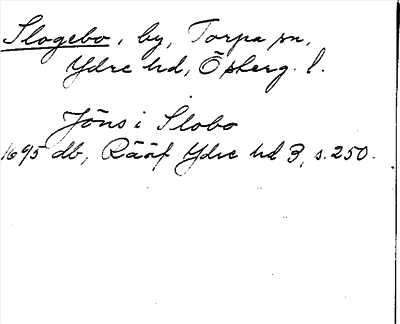 Slogebo, by, Torpa sn,
Ydre hd, Österg. l.
Jöns i Slobo
1695 db, Rääf Ydre hd 3, s. 250.